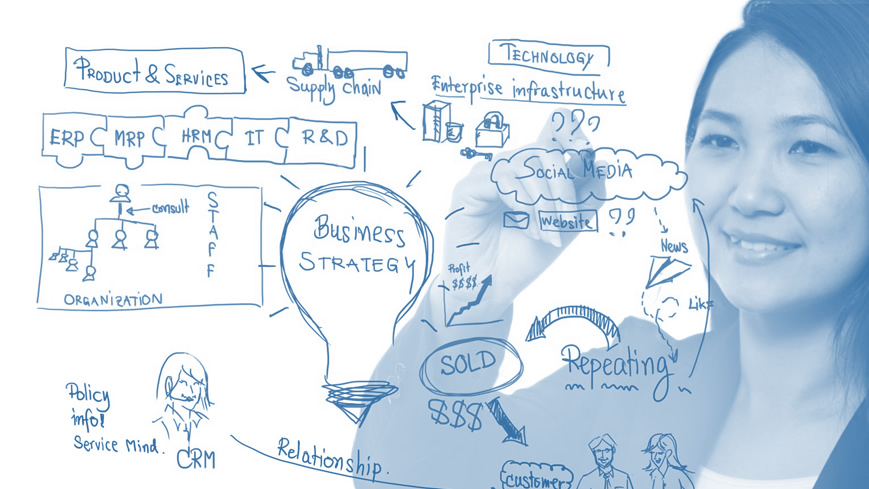 PRODUCT & SERVICES
Supply chain
TECHNOLOGY
Enterprise infrastructure
ERP
MRP
HRM
IT
R&D
???
SOCIAL MEDIA
website
??
consult
STAFF
ORGANIZATION
BUSINESS
STRATEGY
Profit
$$$$
News
Like
SOLD
$$$
Repeating
Policy
info!
Service Mind.
CRM
Relationship.
customer